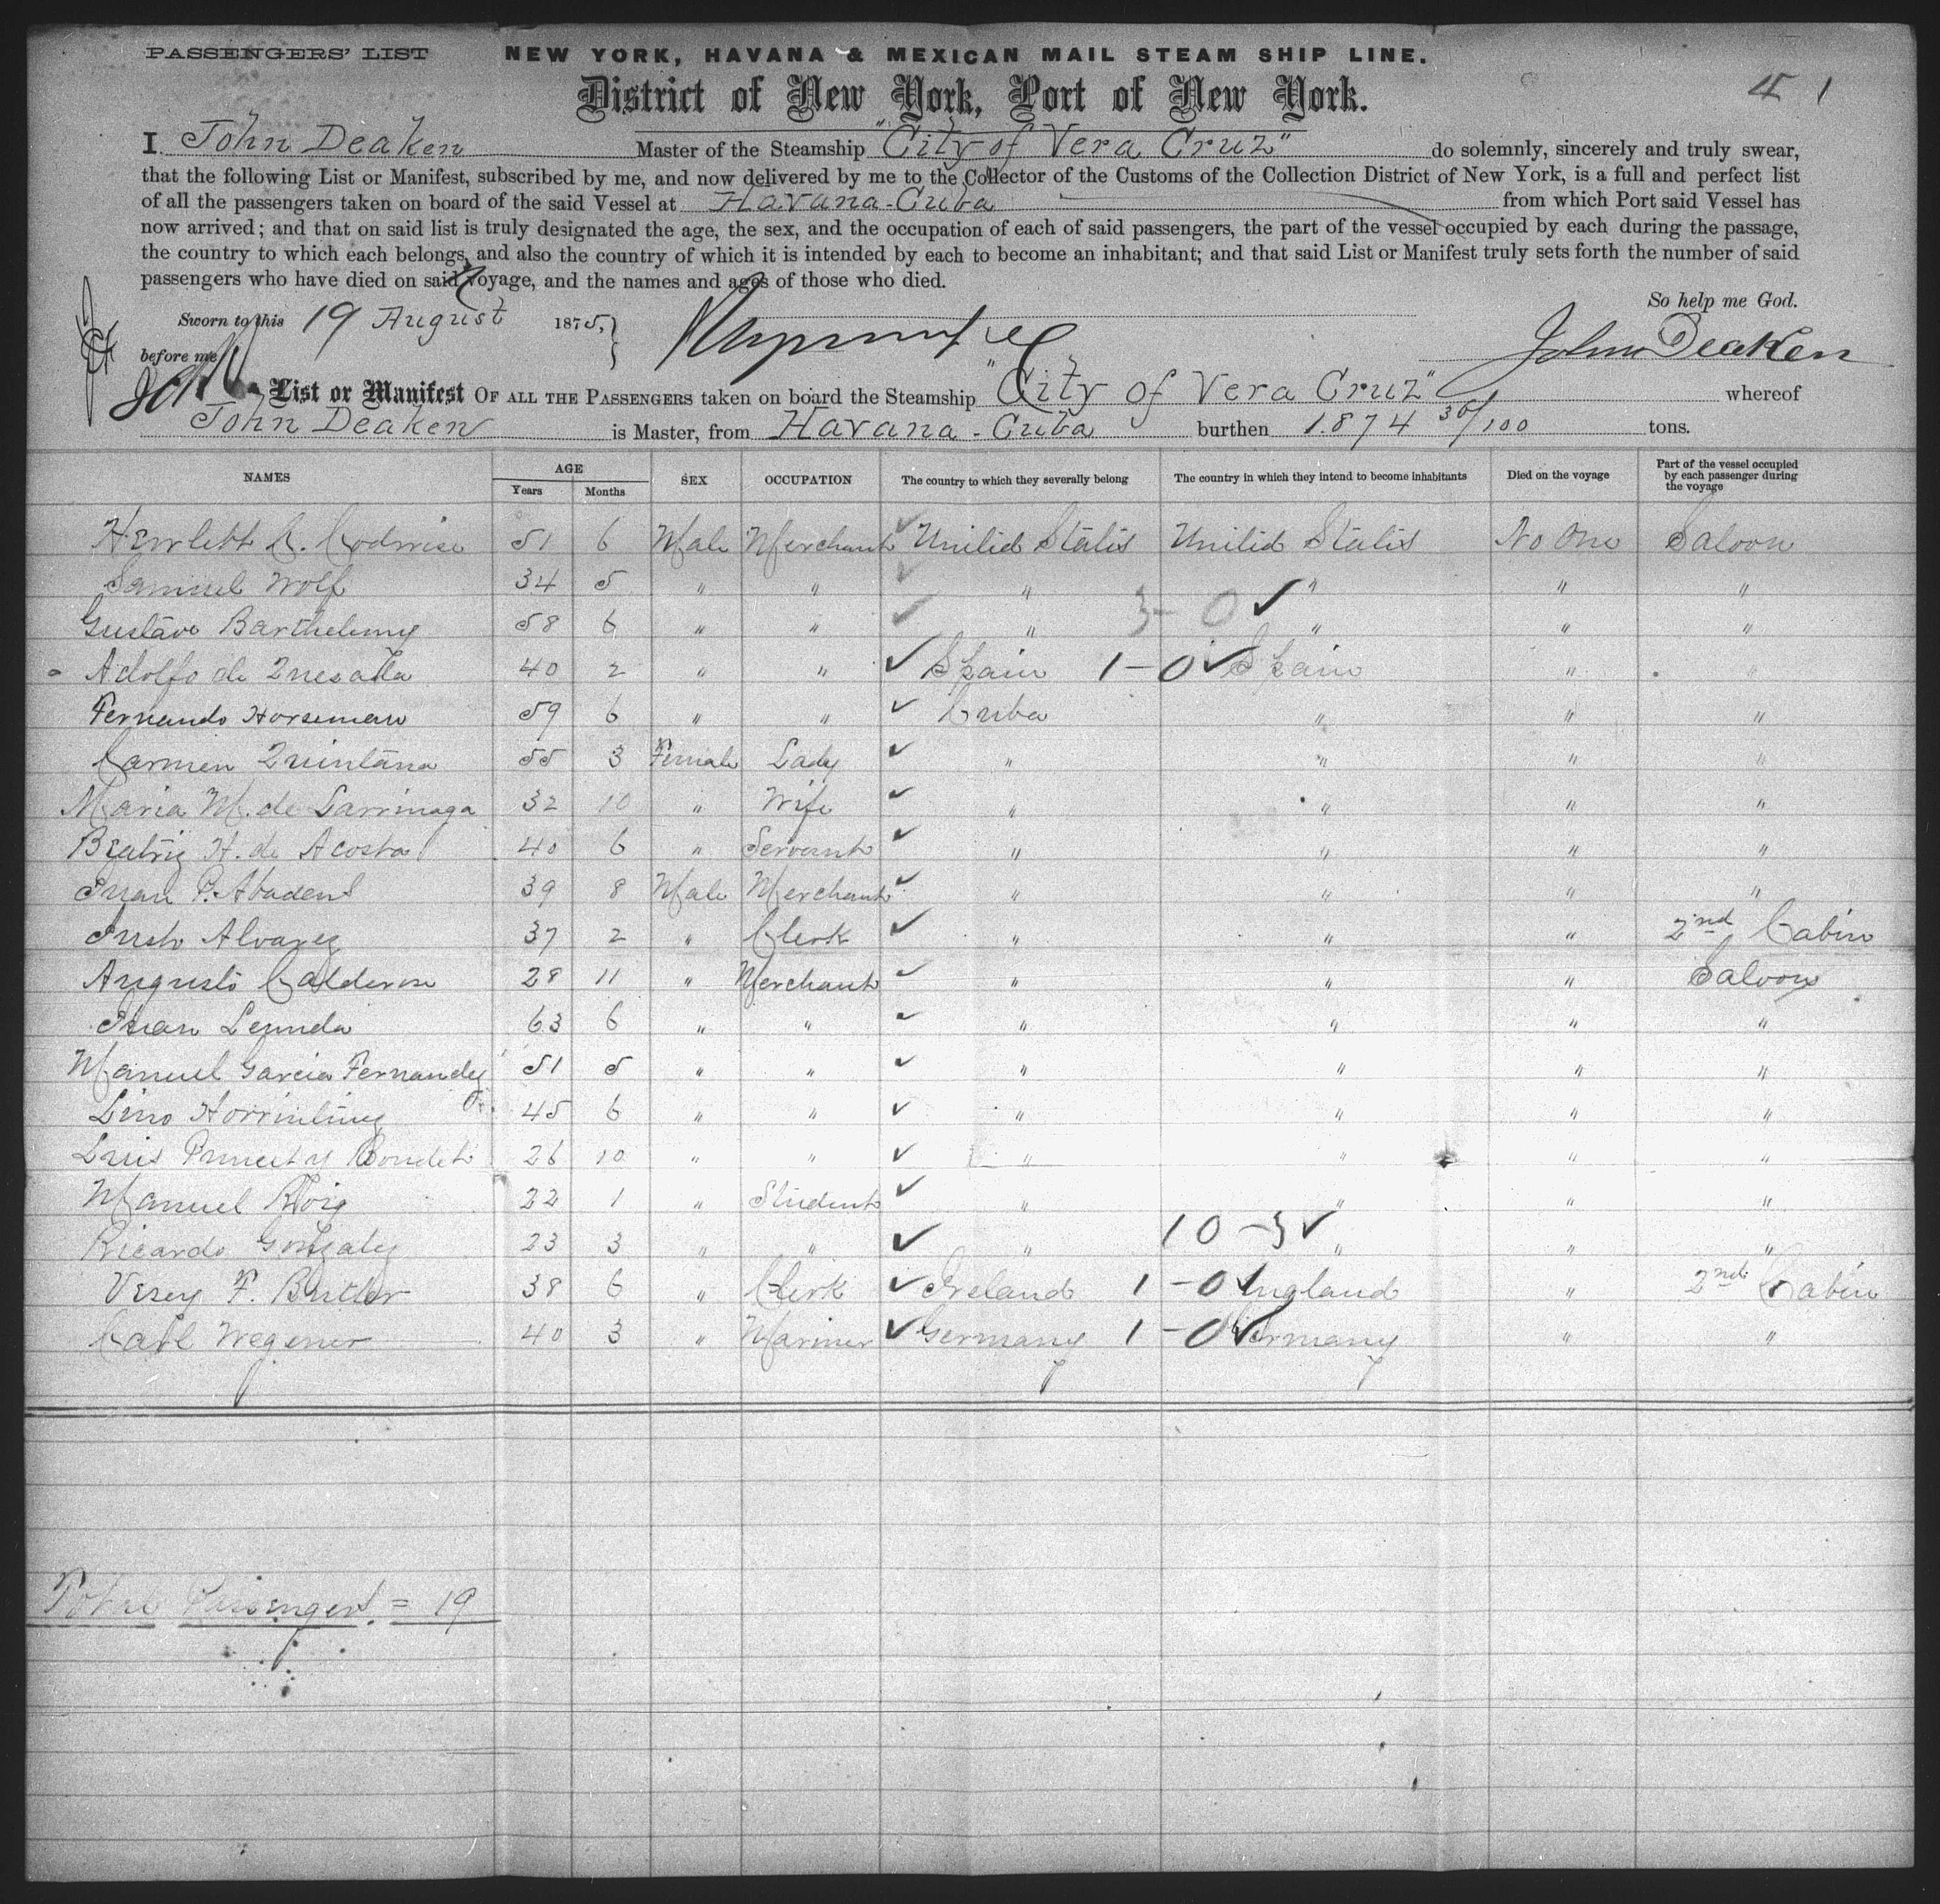 PASSENGERS' LIST NEW YORK, HAVANA & MEXICAN MAIL STEAM SHIP LINE.
District of New York, Port of New York.
I John Deaken Master of the Steamship "City of Vera Cruz" do solemnly, sincerely and truly swear,
that the following List or Manifest, subscribed by me, and now delivered by me to the Collector of the Customs of the Collection District of New York, is a full and perfect list
of all the passengers taken on board of the said Vessel at Havana-Cuba from which Port said Vessel has
now arrived; and that on said list is truly designated the age, the sex, and the occupation of each of said passengers, the part of the vessel occupied by each during the passage,
the country to which each belongs, and also the country of which it is intended by each to become an inhabitant; and that said List or Manifest truly sets forth the number of said
passengers who have died on said voyage, and the names and ages of those who died.
So help me God.
Sworn to this 19 August 1875,
before me John Deaken
List or Manifest OF ALL THE PASSENGERS taken on board the Steamship "City of Vera Cruz" whereof
John Deaken is Master, from Havana - Cuba burthen 1.874 36/100 tons.
NAMES AGE Years Months SEX OCCUPATION The country to which they severally belong The country in which they intend to become inhabitants Died on the voyage Part of the vessel occupied by each passenger during the voyage
Hewlett 51 6 Male Merchant ✓ United States United States No One Saloon
Samuel Wolf 34 5 " " ✓ " " " "
Gustavo Barthelemy 58 6 " " ✓ " 3-0 ✓ " " "
Adolfo de Quesada 40 2 " " ✓ Spain 1-0 ✓ Spain " "
Fernando Horseman 59 6 " " ✓ Cuba " " "
Carmen Quintana 55 3 Female Lady ✓ " " " "
Maria M. de Larrinaga 32 10 " Wife ✓ " " " "
Beatriz H. de Acosta 40 6 " Servant ✓ " " " "
Juan P. 39 8 Male Merchant ✓ " " " "
Justo Alvarez 37 2 " Clerk ✓ " " " 2nd Cabin
Augusto Calderon 28 11 " Merchant ✓ " " " Saloon
Juan 63 6 " " ✓ " " " "
Manuel Garcia Fernandez 51 5 " " ✓ " " " "
Lino 45 6 " " ✓ " " " "
Luis 26 10 " " ✓ " " " "
Manuel Roig 22 1 " Student ✓ " " " "
Ricardo Gonzalez 23 3 " " ✓ " 10-3 ✓ " " "
Vesey F. Butler 38 6 " Clerk ✓ Ireland 1-0 England " 2nd Cabin
Carl Wegener 40 3 " Mariner ✓ Germany 1-0 ✓ Germany " "
Total Passengers = 19